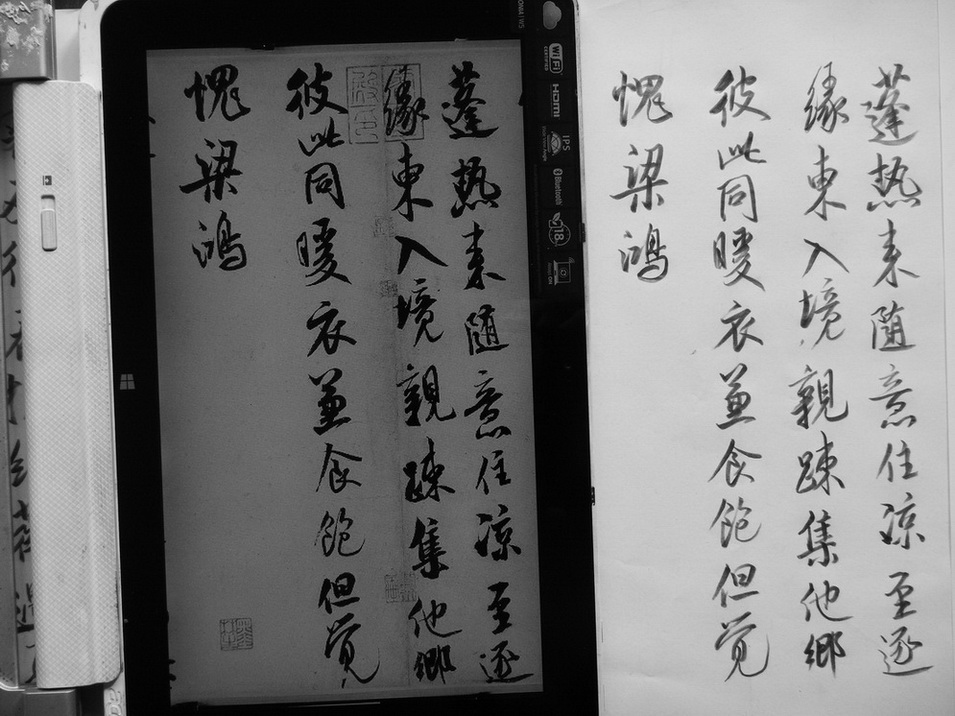 蓬热来随意住涼至逐
緣東入境親踈集他鄉
彼此同暖衣兼食飽但覺
愧梁鴻
WiFi
HDMI
IPS
Bluetooth
18
蓬热来随意住涼至逐
緣東入境親踈集他鄉
彼此同暖衣兼食飽但覺
愧梁鴻